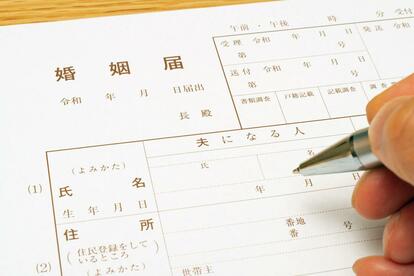 午前・午後 時 分 受付
婚姻届
令和 年 月 日届出
長殿
受理 令和 年 月 日
第 号
発送 令和
送付 令和 年 月 日
第 号
書類調査 戸籍記載 記載調査
夫になる人
(1)
(よみかた)
氏名
氏 名
生年月日
年 月 日
(2)
住所
(住民登録をしているところ)
番地
番 号
(よみかた)
世帯主